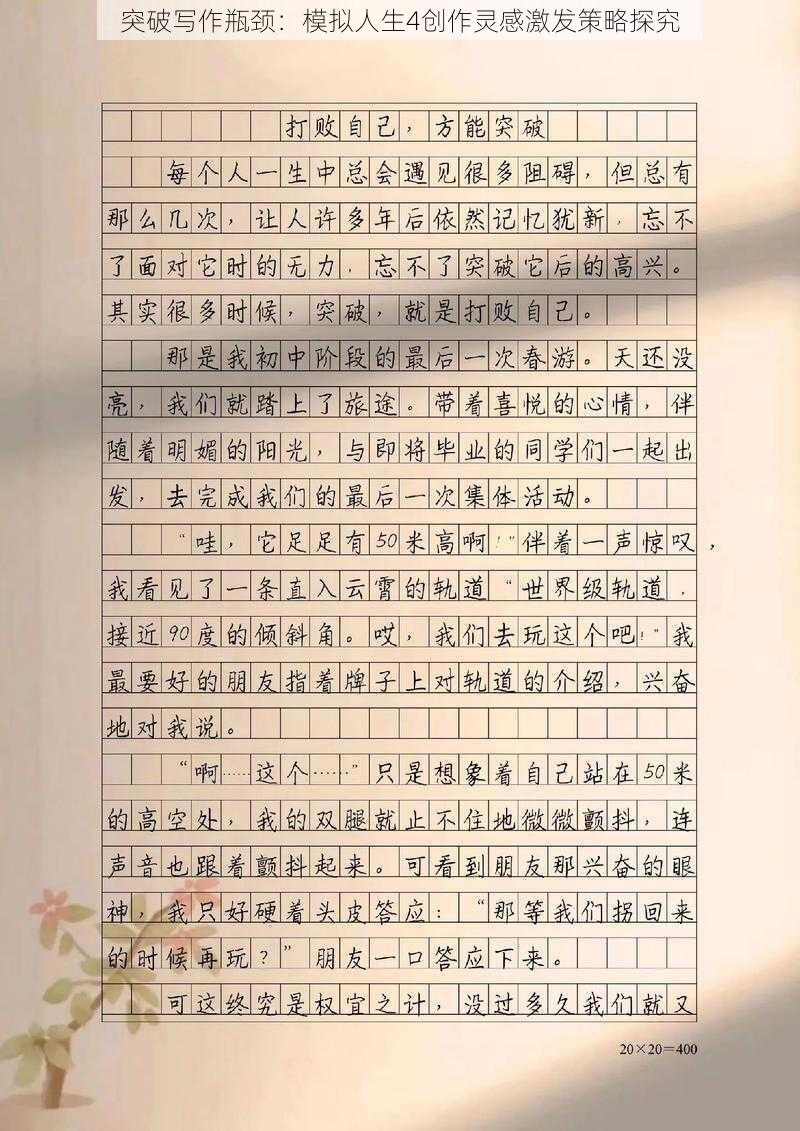 突破写作瓶颈：模拟人生4创作灵感激发策略探究
打败自己，方能突破
每个人一生中总会遇见很多阻碍，但总有
那么几次，让人许多年后依然记忆犹新，忘不
了面对它时的无力，忘不了突破它后的高兴。
其实很多时候，突破，就是打败自己。
那是我初中阶段的最后一次春游。天还没
亮，我们就踏上了旅途。带着喜悦的心情，伴
随着明媚的阳光，与即将毕业的同学们一起出
发，去完成我们的最后一次集体活动。
“哇，它足足有50米高啊！”伴着一声惊叹，
我看见了一条直入云霄的轨道“世界级轨道，
接近90度的倾斜角。哎，我们去玩这个吧！”我
最要好的朋友指着牌子上对轨道的介绍，兴奋
地对我说。
“啊……这个……”只是想象着自己站在50米
的高空处，我的双腿就止不住地微微颤抖，连
声音也跟着颤抖起来。可看到朋友那兴奋的眼
神，我只好硬着头皮答应：“那等我们拐回来
的时候再玩？”朋友一口答应下来。
可这终究是权宜之计，没过多久我们就又
20×20=400